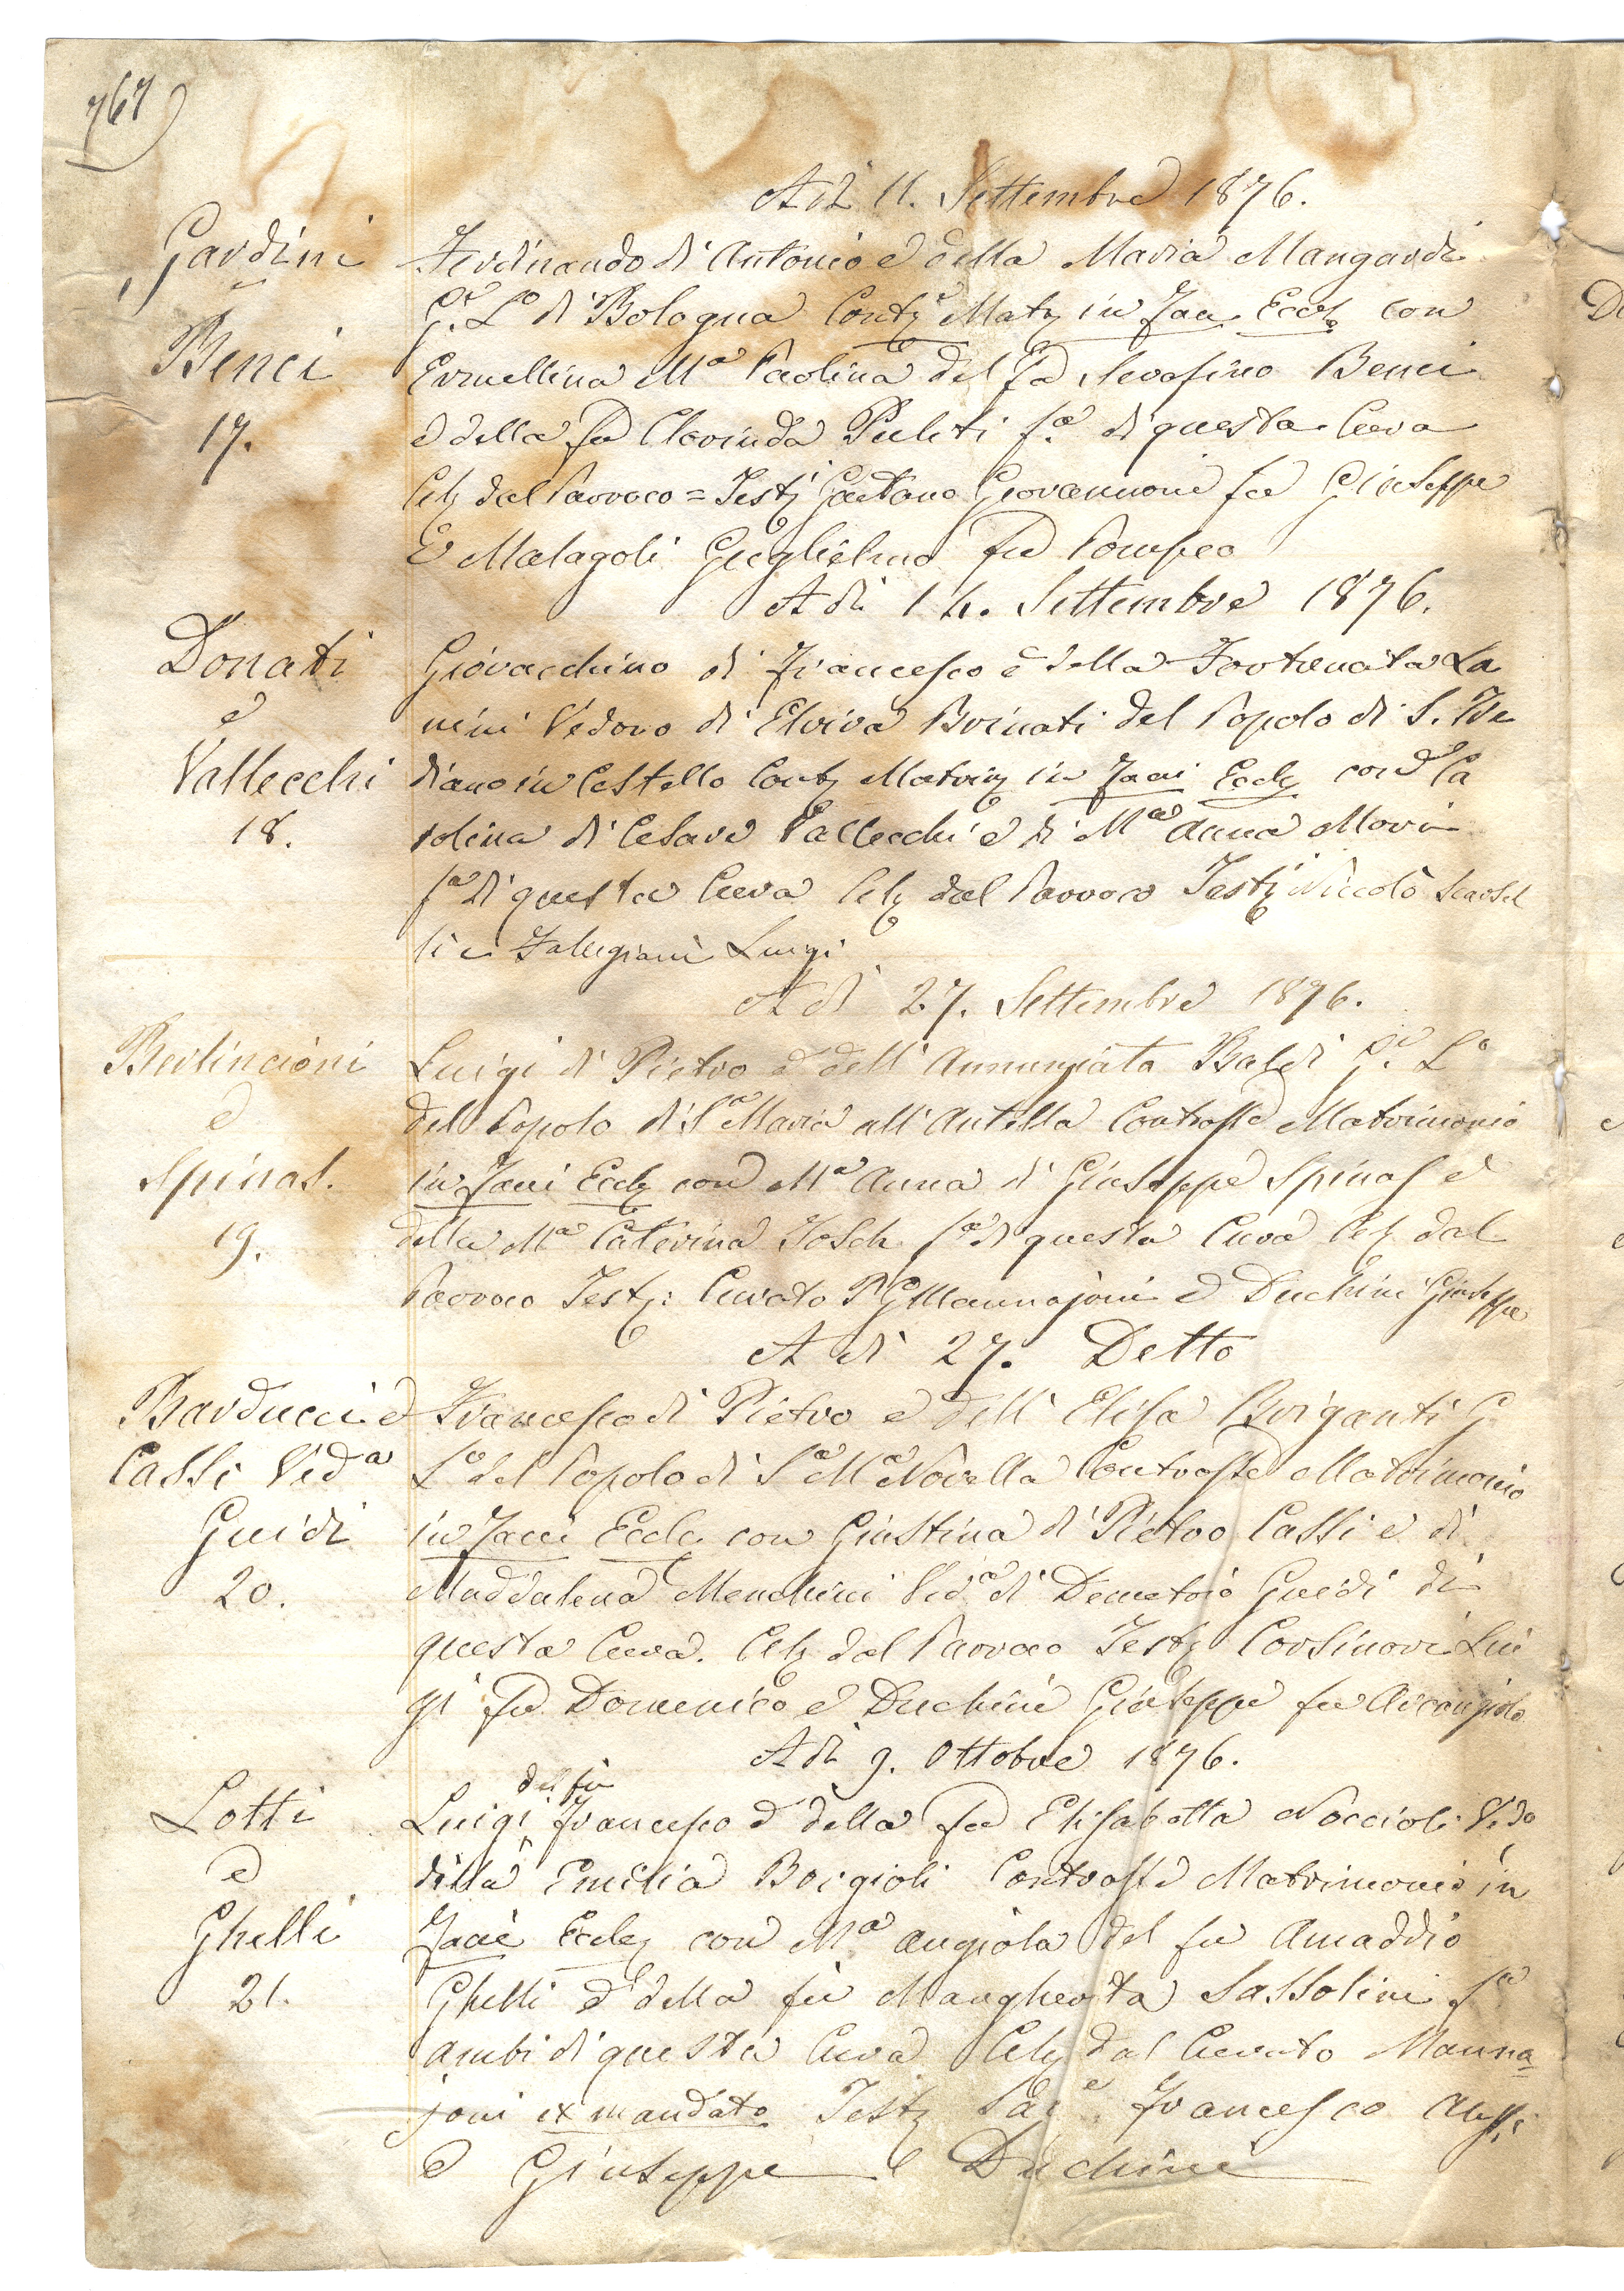 767
A dì 11. Settembre 1876.
Gardini
Ferdinando di Antonio e della Maria Mangardi
G.e L.o di Bologna Contr Matr in Facie Eccl con
Benci
Ermellina Ma Paolina del fu Serafino Benci
17.
e della fu Clorinda Puliti fa di questa Cura
Celz dal Parroco = Testj Gaetano Giovannoni fu Giuseppe
e Malagoli Guglielmo fu Pompeo
A dì 14. Settembre 1876.
Donati
Giovacchino di Francesco e della Fortunata La
e
nini Vedovo di Elvira Brinati del Popolo di S. Fre
Vallecchi
diano in Cestello Contr Matrim in Facie Eccle con Ca
18.
rolina di Cesare Vallecchi e di Ma Anna Mori
fa di questa Cura Celz dal Parroco Testj Niccolò Scarsel
li e Luigi
A dì 27. Settembre 1876.
Berlincioni
Luigi di Pietro e dell' Annunziata Baldi G.e L.o
e
del Popolo di Sa Maria all' Antella Contrasse Matrimonio
Spinas.
in Facie Eccle con Ma Anna di Giuseppe Spinas e
19.
della Ma Caterina Josch fa di questa Cura Celz dal
Parroco Testj: Curato P G Mannajoni e Duchini Giuseppe
A dì 27. Detto
Barducci e
Francesco di Pietro e dell' Elisa Briganti G
Cassi Veda
Lo del Popolo di Sa Ma Novella Contrasse Matrimonio
Guidi
in Facie Eccle con Giustina di Pietro Cassi e di
20.
Maddalena Menchini Veda di Demetrio Guidi di
questa Cura. Celz dal Parroco Testj Corsinovi Lui
gi fu Domenico e Duchini Giuseppe fu Arcangiolo
A dì 9. Ottobre 1876.
del fu
Lotti
Luigi Francesco e della fu Elisabetta Noccioli Vedo
e
della Emilia Borgioli Contrasse Matrimonio in
Ghelli
Facie Eccle con Ma Angiola del fu Amaddio
21.
Ghelli e della fu Margherita Sassolini fa
ambi di questa Cura Celz dal Curato Manna
joni ex mandato Testj Francesco
e Giuseppe Duchini